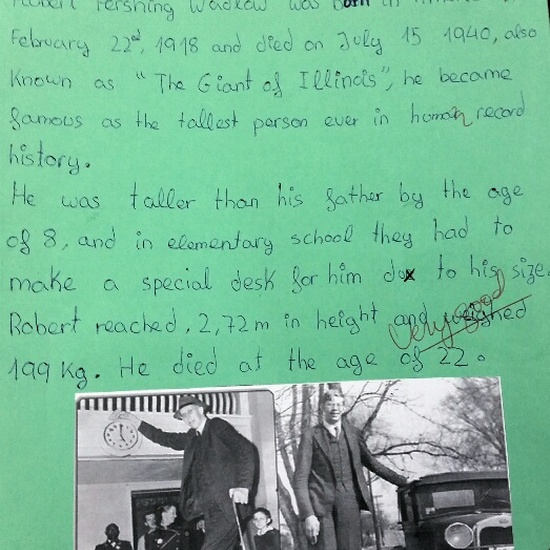 Robert Pershing Wadlow was born in
February 22nd, 1918 and died on July 15 1940, also
Known as "The Giant of Illinois", he became
famous as the tallest person ever in human record
history.
He was taller than his father by the age
of 8, and in elementary school they had to
make a special desk for him due to his size.
Robert reached. 2,72m in height and weighed
very good
199 Kg. He died at the age of 22.